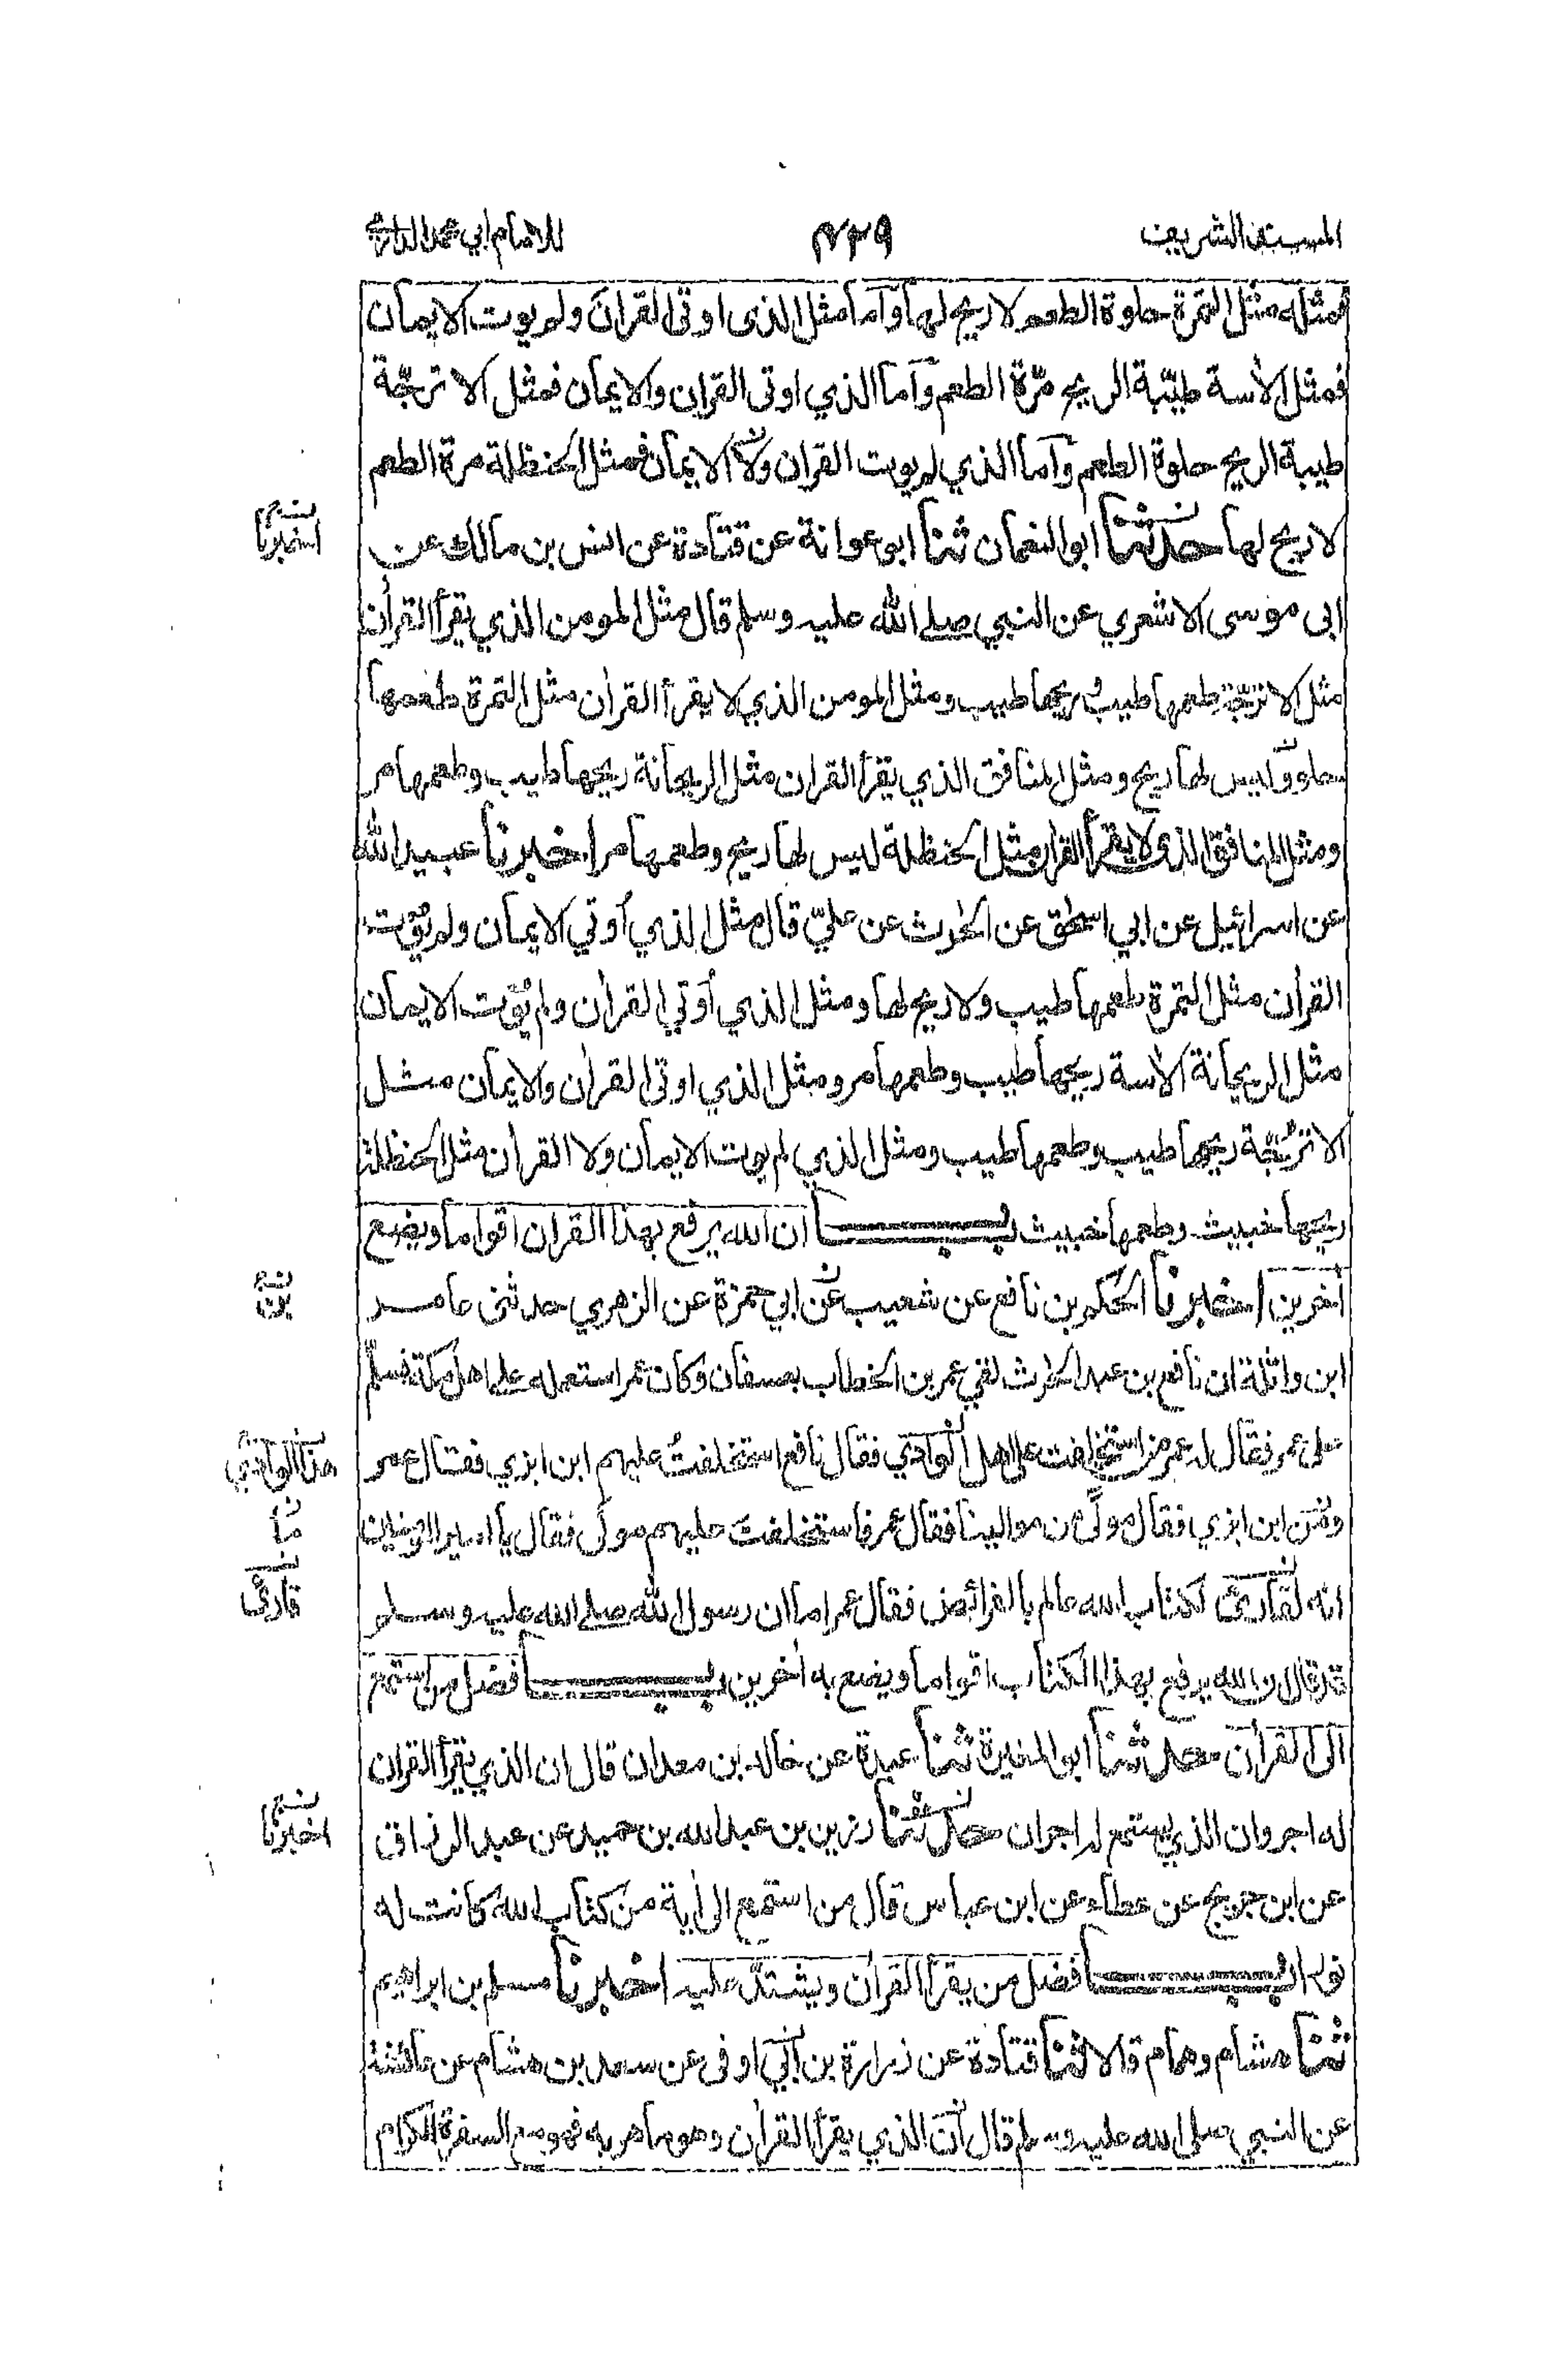 المسند الشريف
٤٣٩
للامام ابي محمد الدارمي
فمثله مثل التمرة حلوة الطعم لا ريح لها وآما مثل الذى اوتى القرآن ولم يوت الايمان
فمثل الأسة طيّبة الريح مرّة الطعم وآما الذي اوتى القران والايمان فمثل الاترجّة
طيبة الريح حلوة الطعم وآما الذي لم يوت القران ولا الايمان فمثل الحنظلة مرة الطعم
لا ريح لها حدثنا ابو النعمان ثنا ابو عوانة عن قتادة عن انس بن مالك عن
نسخ
اخبرنا
ابى موسى الاشعري عن النبي صلے الله عليه وسلم قال مثل المومن الذي يقرأ القرأن
مثل الاترجّة طعمها طيب وريحها طيب ومثل المومن الذي لا يقرأ القرأن مثل التمرة طعمها
حلو وليس لها ريح ومثل المنافق الذي يقرأ القران مثل الريحانة ريحها طيب وطعمها مر
ومثل المنافق الذى لا يقرأ القران مثل الحنظلة ليس لها ريح وطعمها مر اخبرنا عبيد الله
عن اسرائيل عن ابي اسحٰق عن الحٰرث عن عليّ قال مثل الذي أوتي الايمان ولم يُؤت
القرأن مثل التمرة طعمها طيب ولا ريح لها ومثل الذي أوتي القرأن ولم يُؤت الايمان
مثل الريحانة الأسة ريحها طيب وطعمها مر ومثل الذي اوتى القرأن والايمان مثل
الاترُجّة ريحها طيب وطعمها طيب ومثل الذي لم يوت الايمان ولا القرأن مثل الحنظلة
ريحها خبيث وطعمها خبيث باب ان الله يرفع بهذا القران اقواما ويضع
أخرين اخبرنا الحكم بن نافع عن شعيب عن ابي حمزة عن الزهري حدثنى عامر
نسخ
بن
ابن واثلة ان نافع بن عبد الحٰرث لقي عمر بن الخطاب بعسفان وكان عمر استعمله علے اهل مكة فسلّم
على عمر فقال له عمر من استخلفت على اهل الوادي فقال نافع استخلفتُ عليهم ابن ابزي فقال عمر
هذا الوادي
ومَن ابن ابزي فقال مولًى من موالينا فقال عمر فاستخلفتَ عليهم مولى فقال يا امير المومنين
انه لقارئ لكتاب الله عالم بالفرائض فقال عمر اما ان رسول الله صلے الله عليه وسلم
قارئ
قد قال ان الله يرفع بهذا الكتاب اقواما ويضع به أخرين باب فضل من استمع
الى القرأن حدثنا ابو المغيرة ثنا عبدة عن خالد بن معدان قال ان الذي يقرأ القران
له اجر وان الذي يستمع له اجران حدثنا رزين بن عبد الله بن حميد عن عبد الرزاق
نسخ
اخبرنا
عن ابن جريج عن عطاء عن ابن عباس قال من استمع الى أية من كتاب الله كانت له
نورا باب فضل من يقرأ القرأن ويشتدّ عليه اخبرنا مسلم بن ابراهيم
ثنا هشام وهمام قالا ثنا قتادة عن زرارة بن ابي اوفى عن سعد بن هشام عن عائشة
عن النبي صلى الله عليه وسلم قال ان الذي يقرأ القرأن وهو ماهر به فهو مع السفرة الكرام